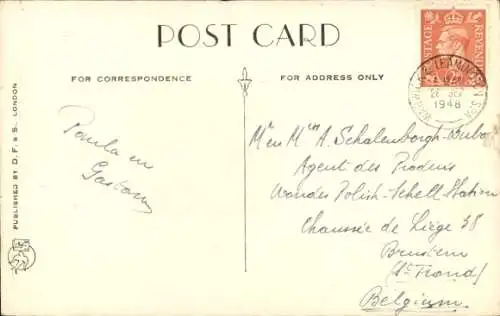 POST CARD
FOR CORRESPONDENCE
FOR ADDRESS ONLY
POSTAGE REVENUE
WARWICK & LEAMINGTON SPA
1948
PUBLISHED BY D. F. & S., LONDON
Paula en
Gaston
Mr en Mme A. Schalenborgh-
Agent des Produits
Wonder Polish-Schell Station
Chaussée de Liège 38
Brustem
(St Trond)
Belgium